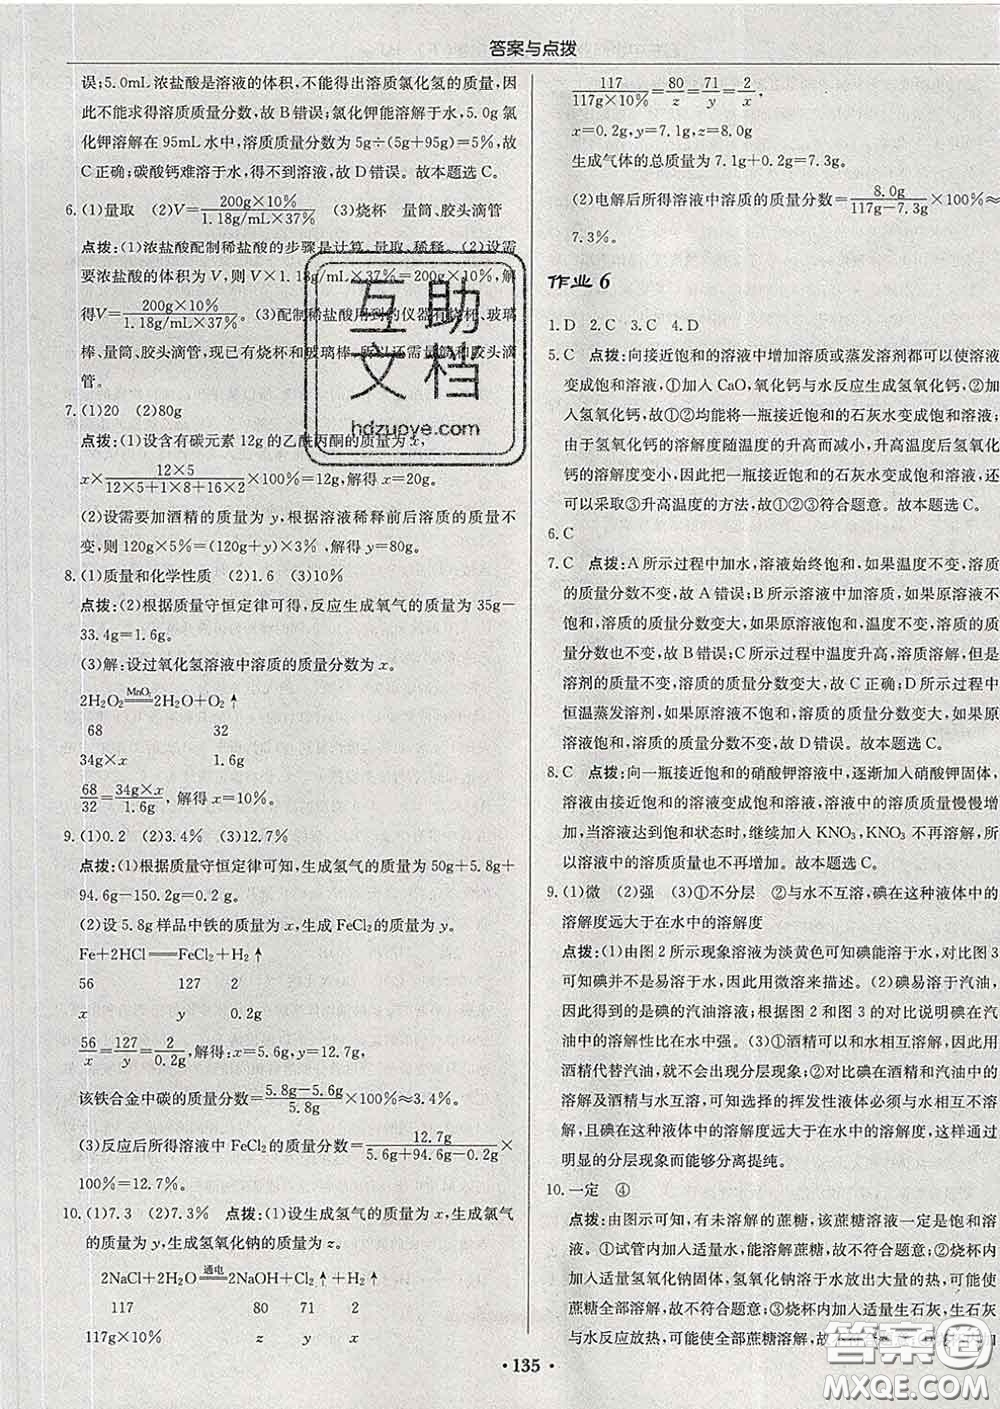 答案与点拨
误;5.0mL浓盐酸是溶液的体积,不能得出溶质氯化氢的质量,因
此不能求得溶质质量分数,故B错误;氯化钾能溶解于水,5.0g氯
化钾溶解在95mL水中,溶质质量分数为5g÷(5g+95g)=5%,故
C正确;碳酸钙难溶于水,得不到溶液,故D错误。故本题选C。
6. (1)量取 (2)V=200g×10%/1.18g/mL×37% (3)烧杯 量筒、胶头滴管
点拨:(1)浓盐酸配制稀盐酸的步骤是计算、量取、稀释。(2)设需
要浓盐酸的体积为V,则V×1.18g/mL×37%=200g×10%,解
得V=200g×10%/1.18g/mL×37%。(3)配制稀盐酸用到的仪器有烧杯、玻璃
棒、量筒、胶头滴管,现已有烧杯和玻璃棒,所以还需量筒和胶头滴
管。
7. (1)20 (2)80g
点拨:(1)设含有碳元素12g的乙酰丙酮的质量为x,
x×12×5/12×5+1×8+16×2×100%=12g,解得x=20g。
(2)设需要加酒精的质量为y,根据溶液稀释前后溶质的质量不
变,则120g×5%=(120g+y)×3%,解得y=80g。
8. (1)质量和化学性质 (2)1.6 (3)10%
点拨:(2)根据质量守恒定律可得,反应生成氧气的质量为35g-
33.4g=1.6g。
(3)解:设过氧化氢溶液中溶质的质量分数为x。
2H₂O₂ MnO₂ 2H₂O+O₂↑
68 32
34g×x 1.6g
68/32=34g×x/1.6g,解得x=10%。
9. (1)0.2 (2)3.4% (3)12.7%
点拨:(1)根据质量守恒定律可知,生成氢气的质量为50g+5.8g+
94.6g-150.2g=0.2 g。
(2)设5.8g样品中铁的质量为x,生成FeCl₂的质量为y。
Fe+2HCl══FeCl₂+H₂↑
56 127 2
x y 0.2g
56/x=127/y=2/0.2g,解得:x=5.6g,y=12.7g,
该铁合金中碳的质量分数=5.8g-5.6g/5.8g×100%≈3.4%。
(3)反应后所得溶液中FeCl₂的质量分数=12.7g/5.6g+94.6g-0.2g×
100%=12.7%。
10. (1)7.3 (2)7.3% 点拨:(1)设生成氢气的质量为x,生成氯气
的质量为y,生成氢氧化钠的质量为z。
2NaCl+2H₂O 通电 2NaOH+Cl₂↑+H₂↑
117 80 71 2
117g×10% z y x
117/117g×10%=80/z=71/y=2/x,
x=0.2g,y=7.1g,z=8.0g
生成气体的总质量为7.1g+0.2g=7.3g。
(2)电解后所得溶液中溶质的质量分数=8.0g/117g-7.3g×100%≈
7.3%。
作业6
1. D 2. C 3. C 4. D
5. C 点拨:向接近饱和的溶液中增加溶质或蒸发溶剂都可以使溶液
变成饱和溶液,①加入CaO,氧化钙与水反应生成氢氧化钙,②加
入氢氧化钙,故①②均能将一瓶接近饱和的石灰水变成饱和溶液;
由于氢氧化钙的溶解度随温度的升高而减小,升高温度后氢氧化
钙的溶解度变小,因此把一瓶接近饱和的石灰水变成饱和溶液,还
可以采取③升高温度的方法,故①②③符合题意。故本题选C。
6. C
7. C 点拨:A所示过程中加水,溶液始终饱和,如果温度不变,溶质
的质量分数不变,故A错误;B所示溶液中加溶质,如果原溶液不
饱和,溶质的质量分数变大,如果原溶液饱和,温度不变,溶质的质
量分数不变,故B错误;C所示过程中温度升高,溶质溶解,但是
溶剂的质量不变,溶质的质量分数变大,故C正确;D所示过程中
恒温蒸发溶剂,如果原溶液不饱和,溶质的质量分数变大,如果原
溶液饱和,溶质的质量分数不变,故D错误。故本题选C。
8. C 点拨:向一瓶接近饱和的硝酸钾溶液中,逐渐加入硝酸钾固体,
溶液由接近饱和的溶液变成饱和溶液,溶液中的溶质质量慢慢增
加,当溶液达到饱和状态时,继续加入KNO₃,KNO₃不再溶解,所
以溶液中的溶质质量也不再增加。故本题选C。
9. (1)微 (2)强 (3)①不分层 ②与水不互溶,碘在这种液体中的
溶解度远大于在水中的溶解度
点拨:(1)由图2所示现象溶液为淡黄色可知碘能溶于水,对比图3
可知碘并不是易溶于水,因此用微溶来描述。(2)碘易溶于汽油,
因此得到的是碘的汽油溶液;根据图2和图3的对比说明碘在汽
油中的溶解性比在水中强。(3)①酒精可以和水相互溶解,因此用
酒精代替汽油,就不会出现分层现象;②因碘在酒精和汽油中的溶
解及酒精与水互溶,可知选择的挥发性液体必须与水不相互溶
解,且碘在这种液体中的溶解度远大于在水中的溶解度,这样通过
明显的分层现象而能够分离提纯。
10. 一定 ④
点拨:由图示可知,有未溶解的蔗糖,该蔗糖溶液一定是饱和溶
液。①试管内加入适量水,能溶解蔗糖,故不符合题意;②烧杯中
加入适量氢氧化钠固体,氢氧化钠溶于水放出大量的热,可能使
蔗糖全部溶解,故不符合题意;③烧杯中加入适量生石灰,生石灰
与水反应放热,可能使全部蔗糖溶解,故不
• 135 •
互助
文档
hdzupye.com
答案圈
MXQE.COM